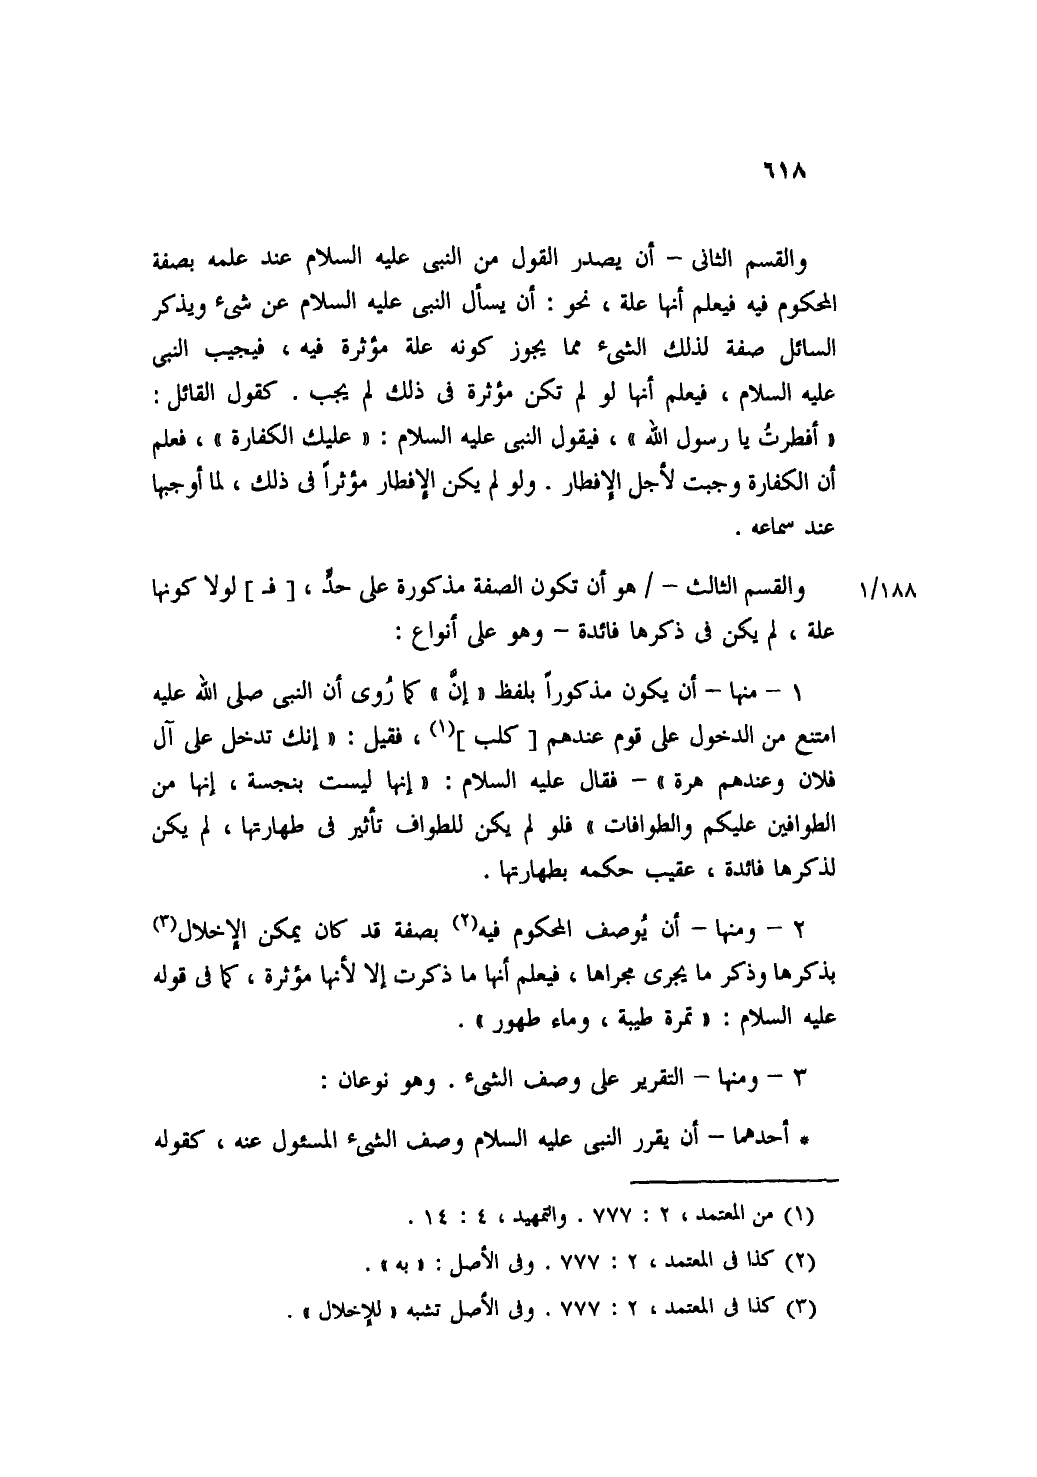 ٦١٨
والقسم الثانى – أن يصدر القول من النبى عليه السلام عند علمه بصفة
المحكوم فيه فيعلم أنها علة ، نحو : أن يسأل النبى عليه السلام عن شىء ويذكر
السائل صفة لذلك الشىء مما يجوز كونه علة مؤثرة فيه ، فيجيب النبى
عليه السلام ، فيعلم أنها لو لم تكن مؤثرة فى ذلك لم يجب . كقول القائل :
« أفطرتُ يا رسول الله » ، فيقول النبى عليه السلام : « عليك الكفارة » ، فعلم
أن الكفارة وجبت لأجل الإفطار . ولو لم يكن الإفطار مؤثراً فى ذلك ، لما أوجبها
عند سماعه .
والقسم الثالث – / هو أن تكون الصفة مذكورة على حدٍّ ، [ فـ ] لولا كونها ١/١٨٨
علة ، لم يكن فى ذكرها فائدة – وهو على أنواع :
١ – منها – أن يكون مذكوراً بلفظ « إنَّ » كما رُوى أن النبى صلى الله عليه
امتنع من الدخول على قوم عندهم [ كلب ](١) ، فقيل : « إنك تدخل على آل
فلان وعندهم هرة » – فقال عليه السلام : « إنها ليست بنجسة ، إنها من
الطوافين عليكم والطوافات » فلو لم يكن للطواف تأثير فى طهارتها ، لم يكن
لذكرها فائدة ، عقيب حكمه بطهارتها .
٢ – ومنها – أن يُوصف المحكوم فيه(٢) بصفة قد كان يمكن الإخلال(٣)
بذكرها وذكر ما يجرى مجراها ، فيعلم أنها ما ذكرت إلا لأنها مؤثرة ، كما فى قوله
عليه السلام : « تمرة طيبة ، وماء طهور » .
٣ – ومنها – التقرير على وصف الشىء . وهو نوعان :
* أحدهما – أن يقرر النبى عليه السلام وصف الشىء المسئول عنه ، كقوله
(١) من المعتمد ، ٢ : ٧٧٧ . والتمهيد ، ٤ : ١٤ .
(٢) كذا فى المعتمد ، ٢ : ٧٧٧ . وفى الأصل : « به » .
(٣) كذا فى المعتمد ، ٢ : ٧٧٧ . وفى الأصل تشبه « للإخلال » .